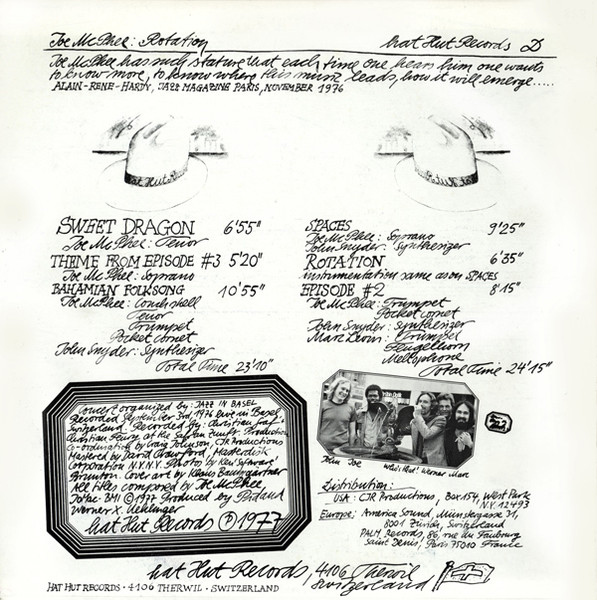 Joe McPhee: Rotation
hat Hut Records D
Joe McPhee has such stature that each time one hears him one wants
to know more, to know where this music leads, how it will emerge.....
ALAIN-RENE-HARDY, JAZZ MAGAZINE PARIS, NOVEMBER 1976
SWEET DRAGON 6'55"
Joe McPhee: Tenor
THEME FROM EPISODE #3 5'20"
Joe McPhee: Soprano
BAHAMIAN FOLKSONG 10'55"
Joe McPhee: Conch shell
Tenor
Trumpet
Pocket cornet
John Snyder: Synthesizer
Total Time 23'10"
SPACES 9'25"
Joe McPhee: Soprano
John Snyder: Synthesizer
ROTATION 6'35"
instrumentation same as on SPACES
EPISODE #2 8'15"
Joe McPhee: Trumpet
Pocket cornet
John Snyder: Synthesizer
Marc Levin: Trumpet
Fluegelhorn
Mellophone
Total Time 24'15"
Concert organized by: JAZZ IN BASEL
Recorded September 3rd, 1976 live in Basel,
Switzerland. Recorded by: Christian Graf,
Christian Feurer at the Safran Zunft. Production
Co-ordination by Craig Johnson CJR Productions
Mastered by David Crawford, Masterdisk
Corporation N.Y. N.Y. Photos by Ken
Brunton. Cover art by Klaus Baumgärtner
All titles composed by Joe McPhee,
BMI © 1977 Produced by
Werner X. Uehlinger
hat Hut Records ℗ 1977
John Joe Werner Marc
Distribution:
USA: CJR Productions, Box 154, West Park
N.Y. 12493
Europe: America Sound, Münstergasse 31,
8001 Zürich, Switzerland
PALM Records, 86, rue du Faubourg
Saint Denis, Paris 75010 France
hat Hut Records, 4106 Therwil
Switzerland
HAT HUT RECORDS · 4106 THERWIL · SWITZERLAND